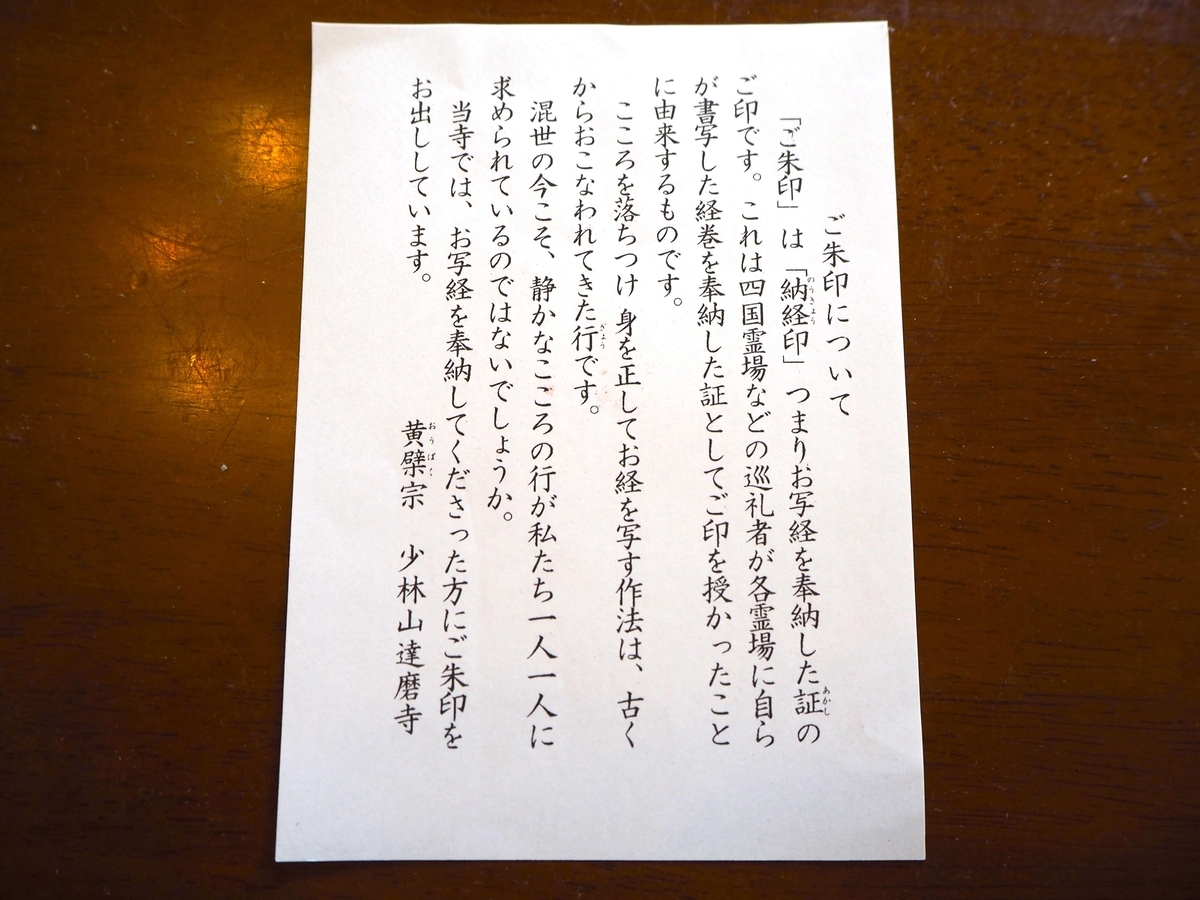 ご朱印について
「ご朱印」は「納経印」つまりお写経を奉納した証の
ご印です。これは四国霊場などの巡礼者が各霊場に自ら
が書写した経巻を奉納した証としてご印を授かったこと
に由来するものです。
こころを落ちつけ 身を正してお経を写す作法は、古く
からおこなわれてきた行です。
混世の今こそ、静かなこころの行が私たち一人一人に
求められているのではないでしょうか。
当寺では、お写経を奉納してくださった方にご朱印を
お出ししています。
黄檗宗 少林山達磨寺
のうきょう
あかし
ぎょう
おうばく